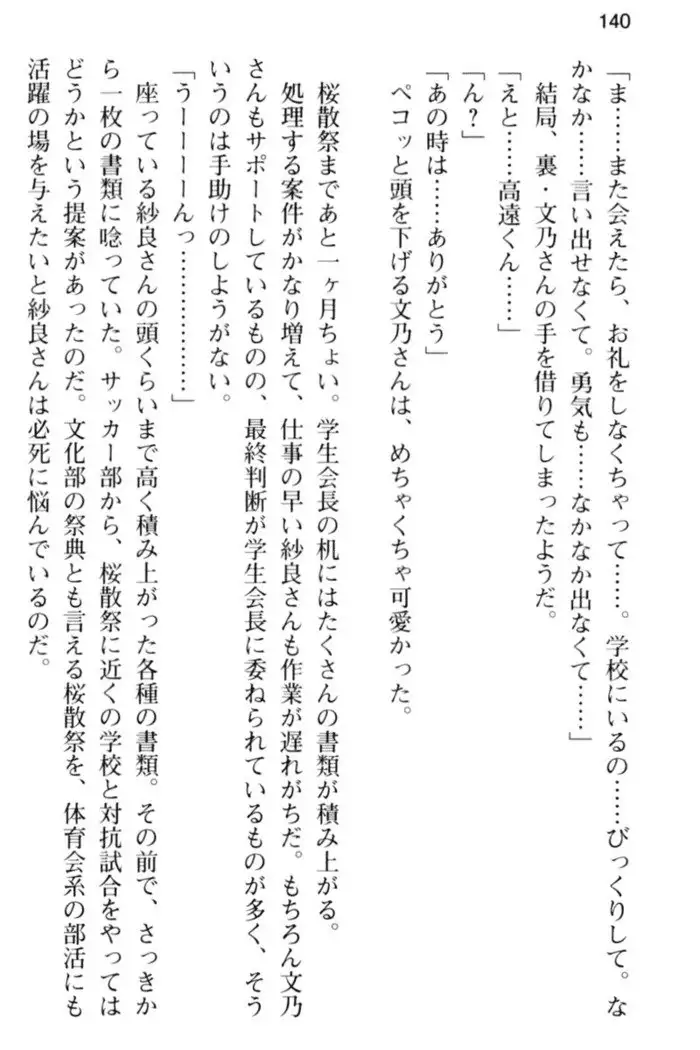 140
「ま……また会えたら、お礼をしなくちゃって……。学校にいるの……びっくりして。な
かなか……言い出せなくて。勇気も……なかなか出なくて……」
結局、裏・文乃さんの手を借りてしまったようだ。
「えと……高遠くん……」
「ん？」
「あの時は……ありがとう」
ペコッと頭を下げる文乃さんは、めちゃくちゃ可愛かった。
桜散祭まであと一ヶ月ちょい。学生会長の机にはたくさんの書類が積み上がる。
処理する案件がかなり増えて、仕事の早い紗良さんも作業が遅れがちだ。もちろん文乃
さんもサポートしているものの、最終判断が学生会長に委ねられているものが多く、そう
いうのは手助けのしようがない。
「うーーーーんっ………………」
座っている紗良さんの頭くらいまで高く積み上がった各種の書類。その前で、さっきか
ら一枚の書類に唸っていた。サッカー部から、桜散祭に近くの学校と対抗試合をやっては
どうかという提案があったのだ。文化部の祭典とも言える桜散祭を、体育会系の部活にも
活躍の場を与えたいと紗良さんは必死に悩んでいるのだ。